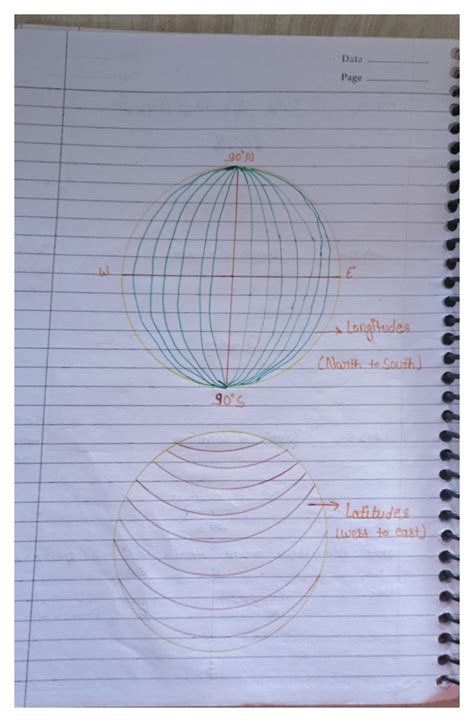 Date
Page
90°N
W
E
Longitudes
(North to South)
90°S
Latitudes
(west to east)